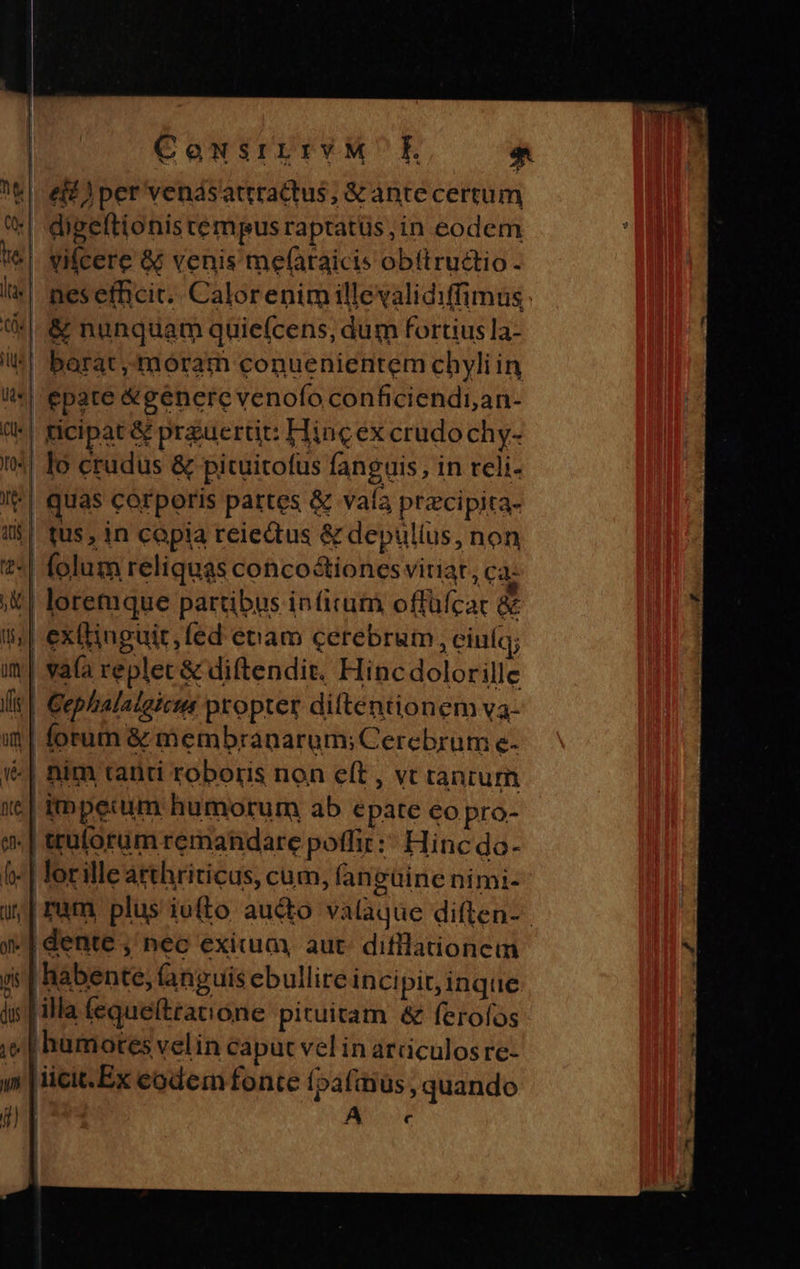 CONSILIVM I.
est) per venas attractus, & ante certum
digestionis tempus raptatus, in eodem
viscere & venis mesaraicis obstructio-
nes efficit. Calor enim ille validissimus
& nunquam quiescens, dum fortius la-
borat, moram conuenientem chyli in
epate & genere venoso conficiendi, an-
ticipat & præuertit: Hinc ex crudo chy-
lo crudus & pituitosus sanguis, in reli-
quas corporis partes & vasa præcipita-
tus, in copia reiectus & depulsus, non
solum reliquas concoctiones vitiat, ca-
loremque partibus insitum offuscat &
exstinguit, sed etiam cerebrum, eiusq;
vasa replet & distendit. Hinc dolor ille
Cephalalgicus propter distentionem va-
sorum & membranarum; Cerebrum e-
nim tanti roboris non est, vt tantum
impetum humorum ab epate eo pro-
trusorum remandare possit: Hinc do-
lor ille arthriticus, cum, sanguine nimi-
rum plus iusto aucto vasaque disten-
dente, nec exitum, aut difflationem
habente, sanguis ebullire incipit, inque
illa sequestratione pituitam & serosos
humores vel in caput vel in articulos re-
iicit. Ex eodem fonte spasmus, quando
A